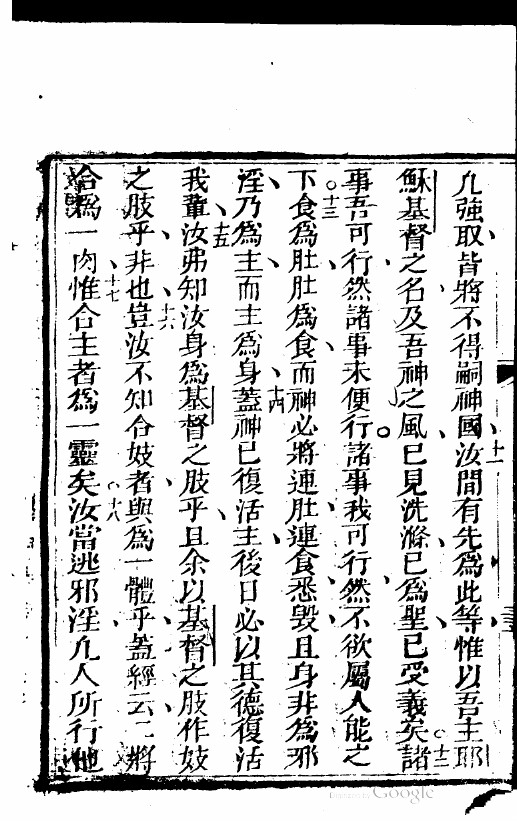 凢強取皆將不得嗣神國十一汝間有先爲此等惟以吾主耶
穌基督之名及吾神之風已見洗滌已爲聖已受義矣十二諸
事吾可行然諸事未便行諸事我可行然不欲屬人能之
下十三食爲肚肚爲食而神必將連肚連食悉毀且身非爲邪
淫乃爲主而主爲身十四蓋神已復活主後日必以其德復活
我輩十五汝弗知汝身爲基督之肢乎且余以基督之肢作妓
之肢乎非也十六豈汝不知合妓者與爲一體乎蓋經云二將
合爲一肉十七惟合主者爲一靈矣十八汝當逃邪淫凢人所行他
Google